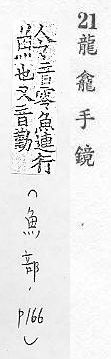 21龍龕手鏡
音零魚連行
也又音勤
(魚部, p166)